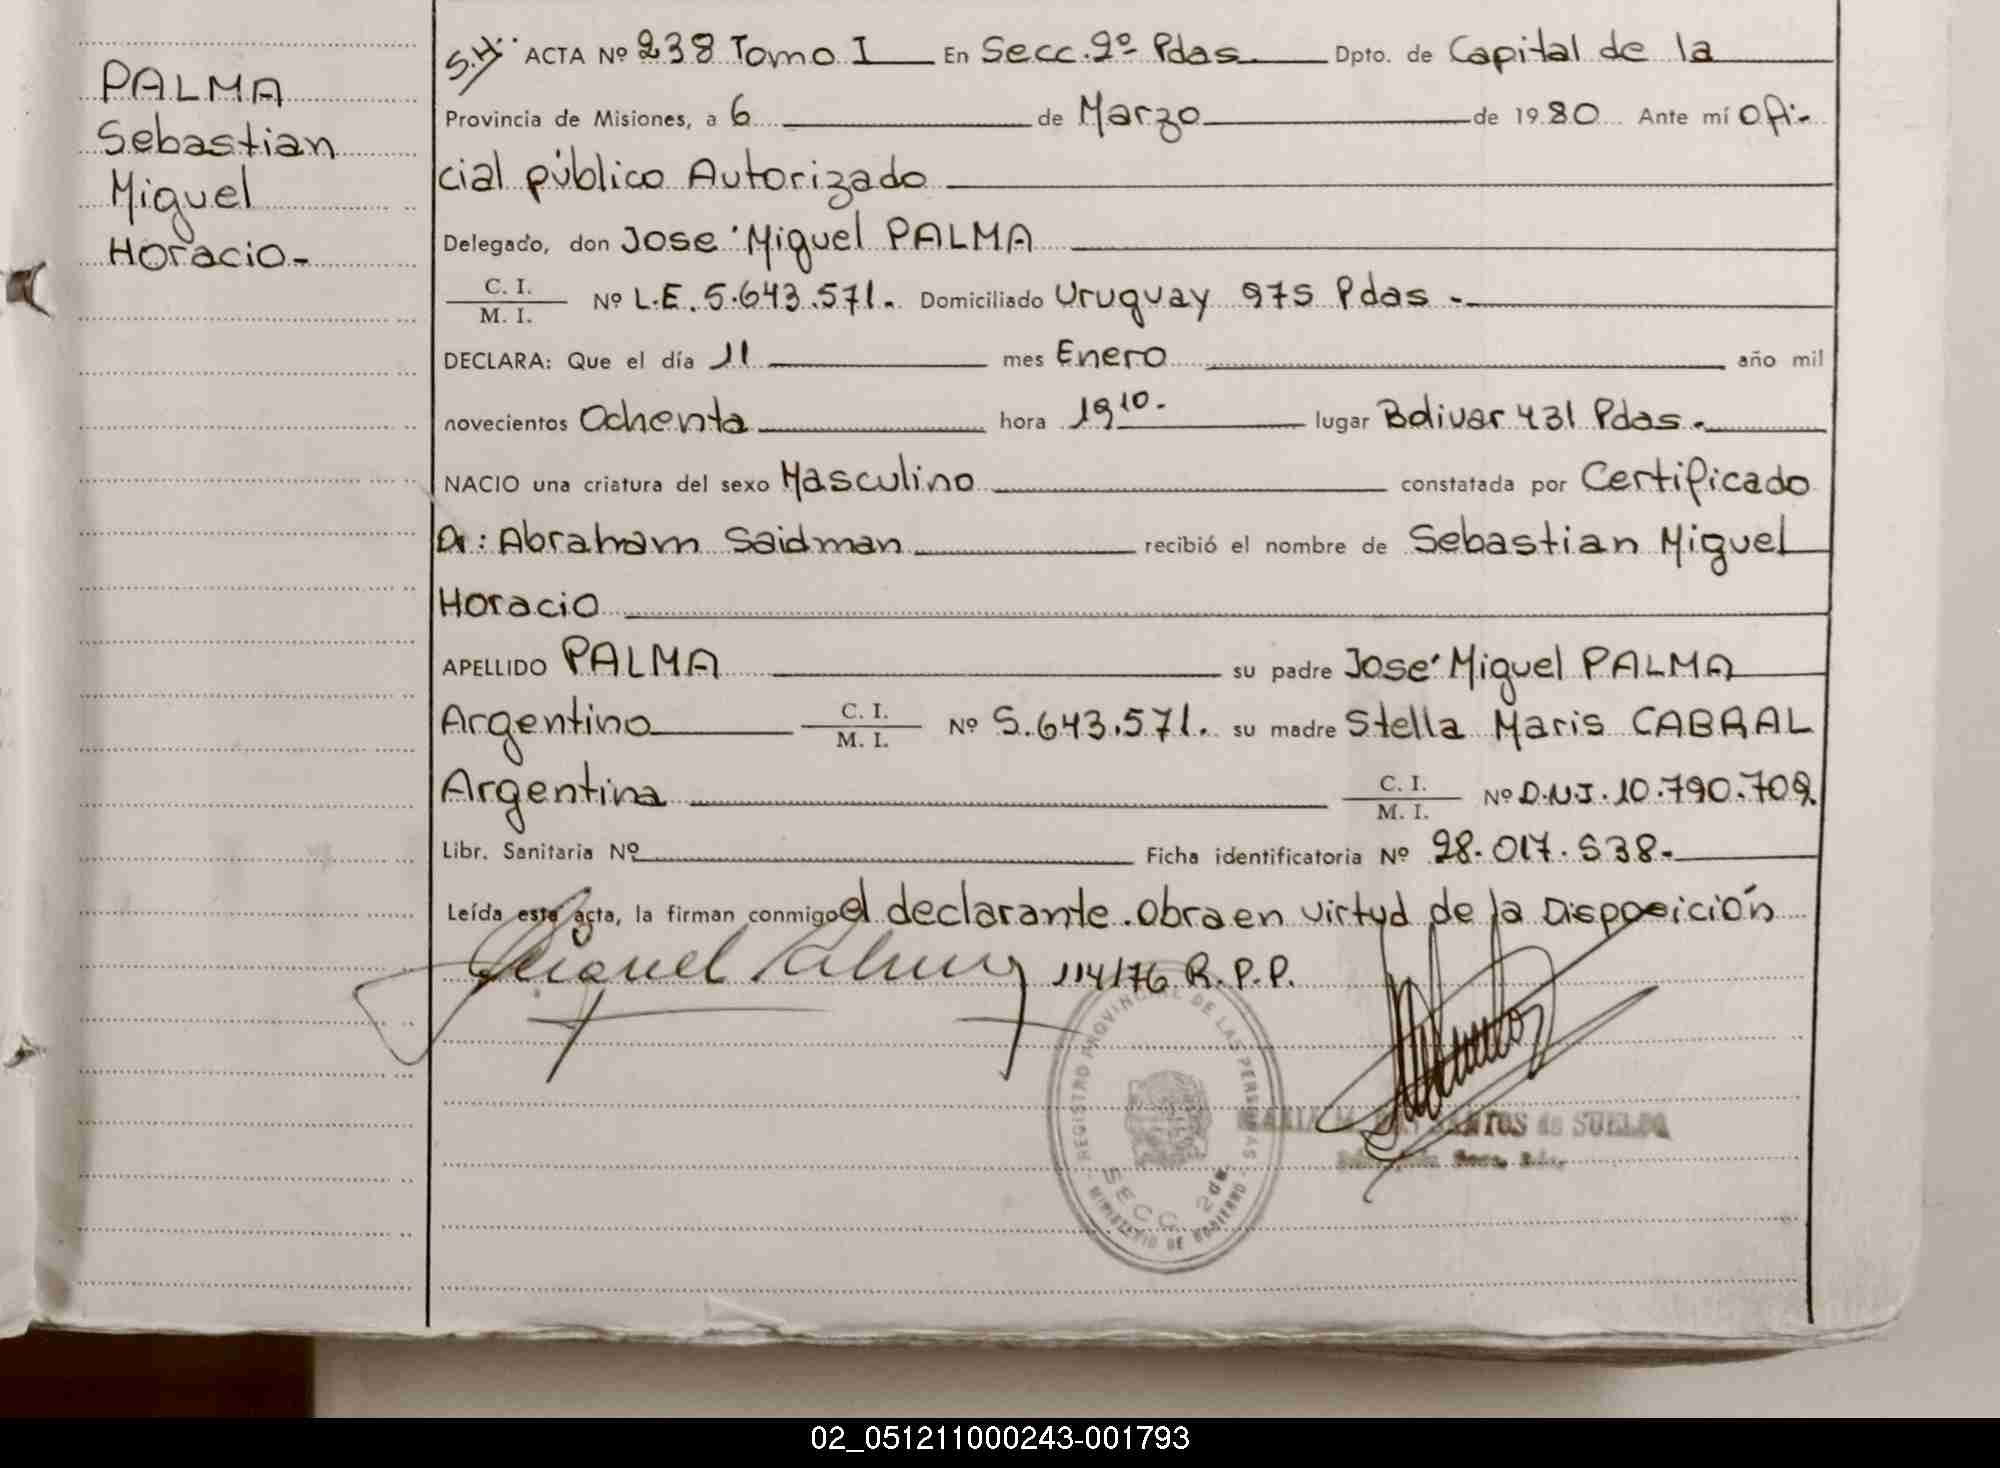 PALMA
Sebastian
Miguel
Horacio-
S.H. ACTA Nº 238 Tomo I En Secc. 2º Pdas. Dpto. de Capital de la
Provincia de Misiones, a 6 de Marzo de 1980 Ante mí Ofi-
cial público Autorizado
Delegado, don José Miguel PALMA
C. I.
M. I. Nº L.E. 5.643.571.- Domiciliado Uruguay 975 Pdas -
DECLARA: Que el día 11 mes Enero año mil
novecientos Ochenta hora 19 10.- lugar Bolivar 431 Pdas.-
NACIO una criatura del sexo Masculino constatada por Certificado
Dr: Abraham Saidman recibió el nombre de Sebastian Miguel
Horacio
APELLIDO PALMA su padre José Miguel PALMA
Argentino C. I.
M. I. Nº 5.643.571. su madre Stella Maris CABRAL
Argentina C. I.
M. I. Nº D.N.I. 10.790.709
Libr. Sanitaria Nº Ficha identificatoria Nº 28.017.538.-
Leída esta acta, la firman conmigo el declarante. Obra en virtud de la Disposición
114/76 R.P.P.
REGISTRO PROVINCIAL DE LAS PERSONAS
SECC. 2da.
MINISTERIO DE GOBIERNO
SANTOS de SUELDO
02_051211000243-001793